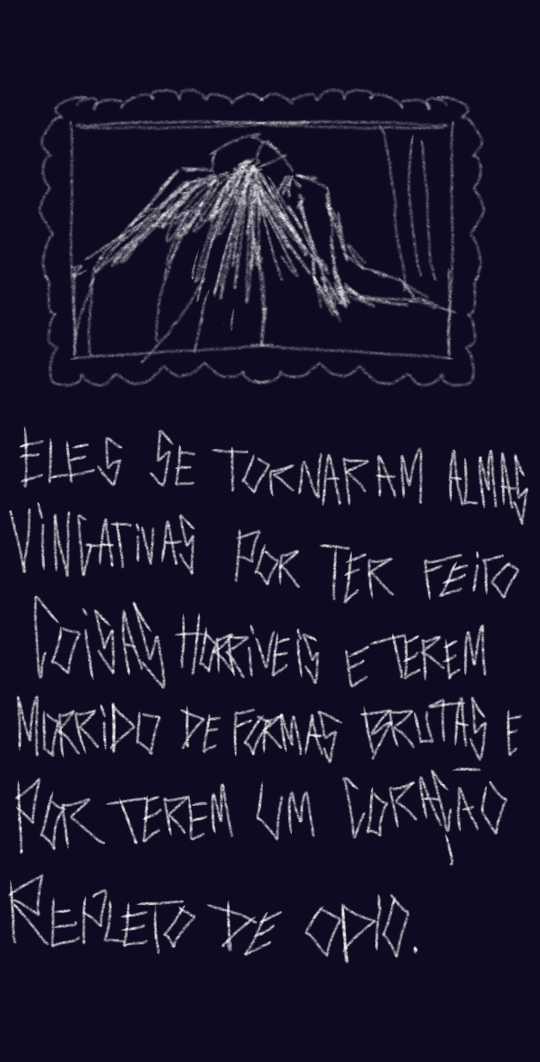 ELES SE TORNARAM ALMAS
VINGATIVAS POR TER FEITO
COISAS HORRIVEIS E TEREM
MORRIDO DE FORMAS BRUTAS E
POR TEREM UM CORAÇÃO
REPLETO DE ODIO.